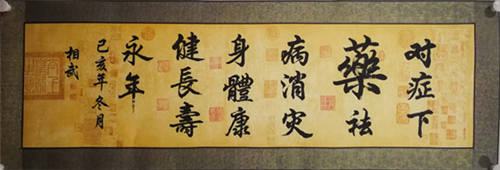 对症下
藥祛
病消灾
身體康
健長壽
永年
己亥年冬月
相武